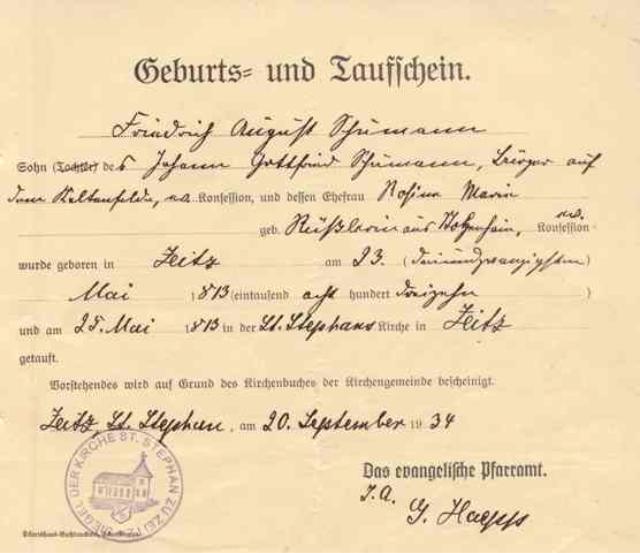 Geburts- und Taufschein.
Friedrich August Schumann
Sohn (Tochter) des Johann Gottfried Schumann, Bürger auf
dem Kaltenfelde, ev. Konfession, und dessen Ehefrau Rosine Marie
geb. aus Konfession ev.
wurde geboren in Zeitz am 23. (dreiundzwanzigsten)
Mai 1813 (eintausend acht hundert dreizehn)
und am 25. Mai 1813 in der St. Stephans Kirche in Zeitz
getauft.
Vorstehendes wird auf Grund des Kirchenbuches der Kirchengemeinde bescheinigt.
Zeitz, St. Stephan, am 20. September 1934
Das evangelische Pfarramt.
J. A.
G.
SIEGEL DER KIRCHE ST. STEPHAN ZU ZEITZ